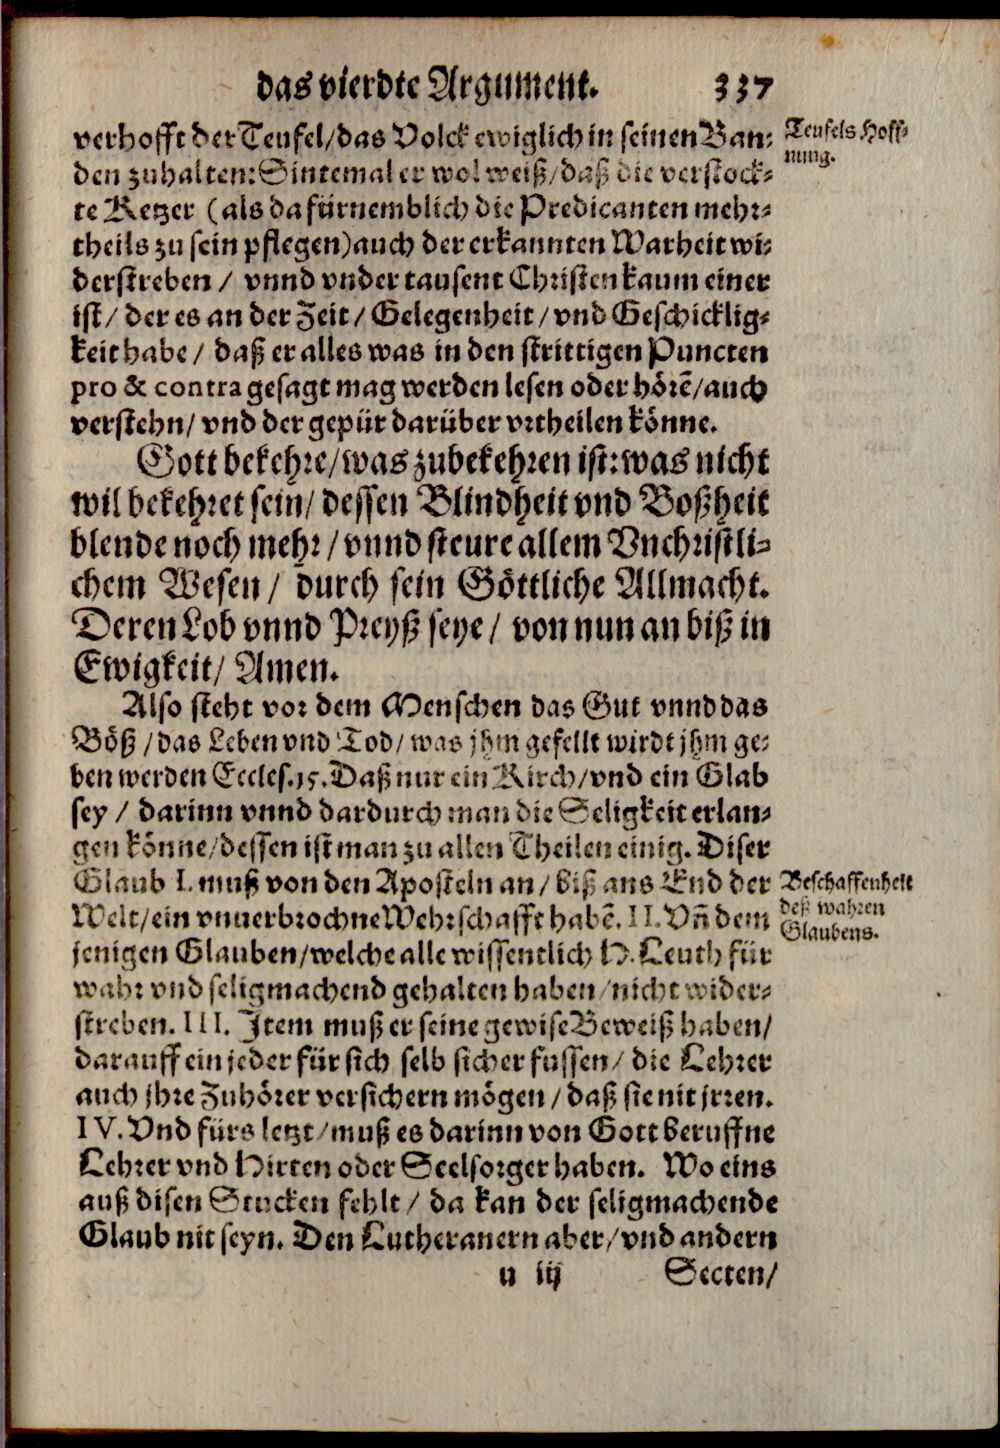 das vierdte Argument. 337
verhofft der Teufel/das Volck ewiglich in seinen Ban-
Teufels Hoff-
nung.
den zuhalten: Sintemal er wol weiß/daß die verstock-
te Ketzer (als da fürnemblich die Predicanten mehr-
theils zu sein pflegen) auch der erkannten Warheit wi-
derstreben / vnnd vnder tausent Christen kaum einer
ist/ der es an der Zeit/ Gelegenheit/ vnd Geschicklig-
keit habe/ daß er alles was in den strittigen Puncten
pro & contra gesagt mag werden lesen oder hörẽ/auch
verstehn/ vnd der gepür darüber vrtheilen könne.
Gott bekehre/was zubekehren ist: was nicht
wil bekehret sein/ dessen Blindheit vnd Boßheit
blende noch mehr/ vnnd steure allem Vnchristli-
chem Wesen/ durch sein Göttliche Allmacht.
Deren Lob vnnd Preyß seye/ von nun an biß in
Ewigkeit/ Amen.
Also steht vor dem Menschen das Gut vnnd das
Böß/das Leben vnd Tod/ was jhm gefellt wirdt jhm ge-
ben werden Eccles. 15. Daß nur ein Kirch/vnd ein Glab
sey / darinn vnnd dardurch man die Seligkeit erlan-
gen könne/dessen ist man zu allen Theilen einig. Diser
Glaub I. muß von den Aposteln an/ biß ans End der
Beschaffenheit
deß wahren
Glaubens.
Welt/ein vnuerbrochne Wehrschafft habẽ. II. Vñ dem
jenigen Glauben/welche alle wissentlich H. Leuth für
wahr vnd seligmachend gehalten haben/nicht wider-
streben. III. Item muß er seine gewise Beweiß haben/
darauff ein jeder für sich selb sicher fussen/ die Lehrer
auch jhre Zuhörer versichern mögen/ daß sie nit jrren.
IV. Vnd fürs letzt/muß es darinn von Gott beruffne
Lehrer vnd Hirten oder Seelsorger haben. Wo eins
auß disen Stucken fehlt/ da kan der seligmachende
Glaub nit seyn. Den Lutheranern aber/vnd andern
u iij Secten/